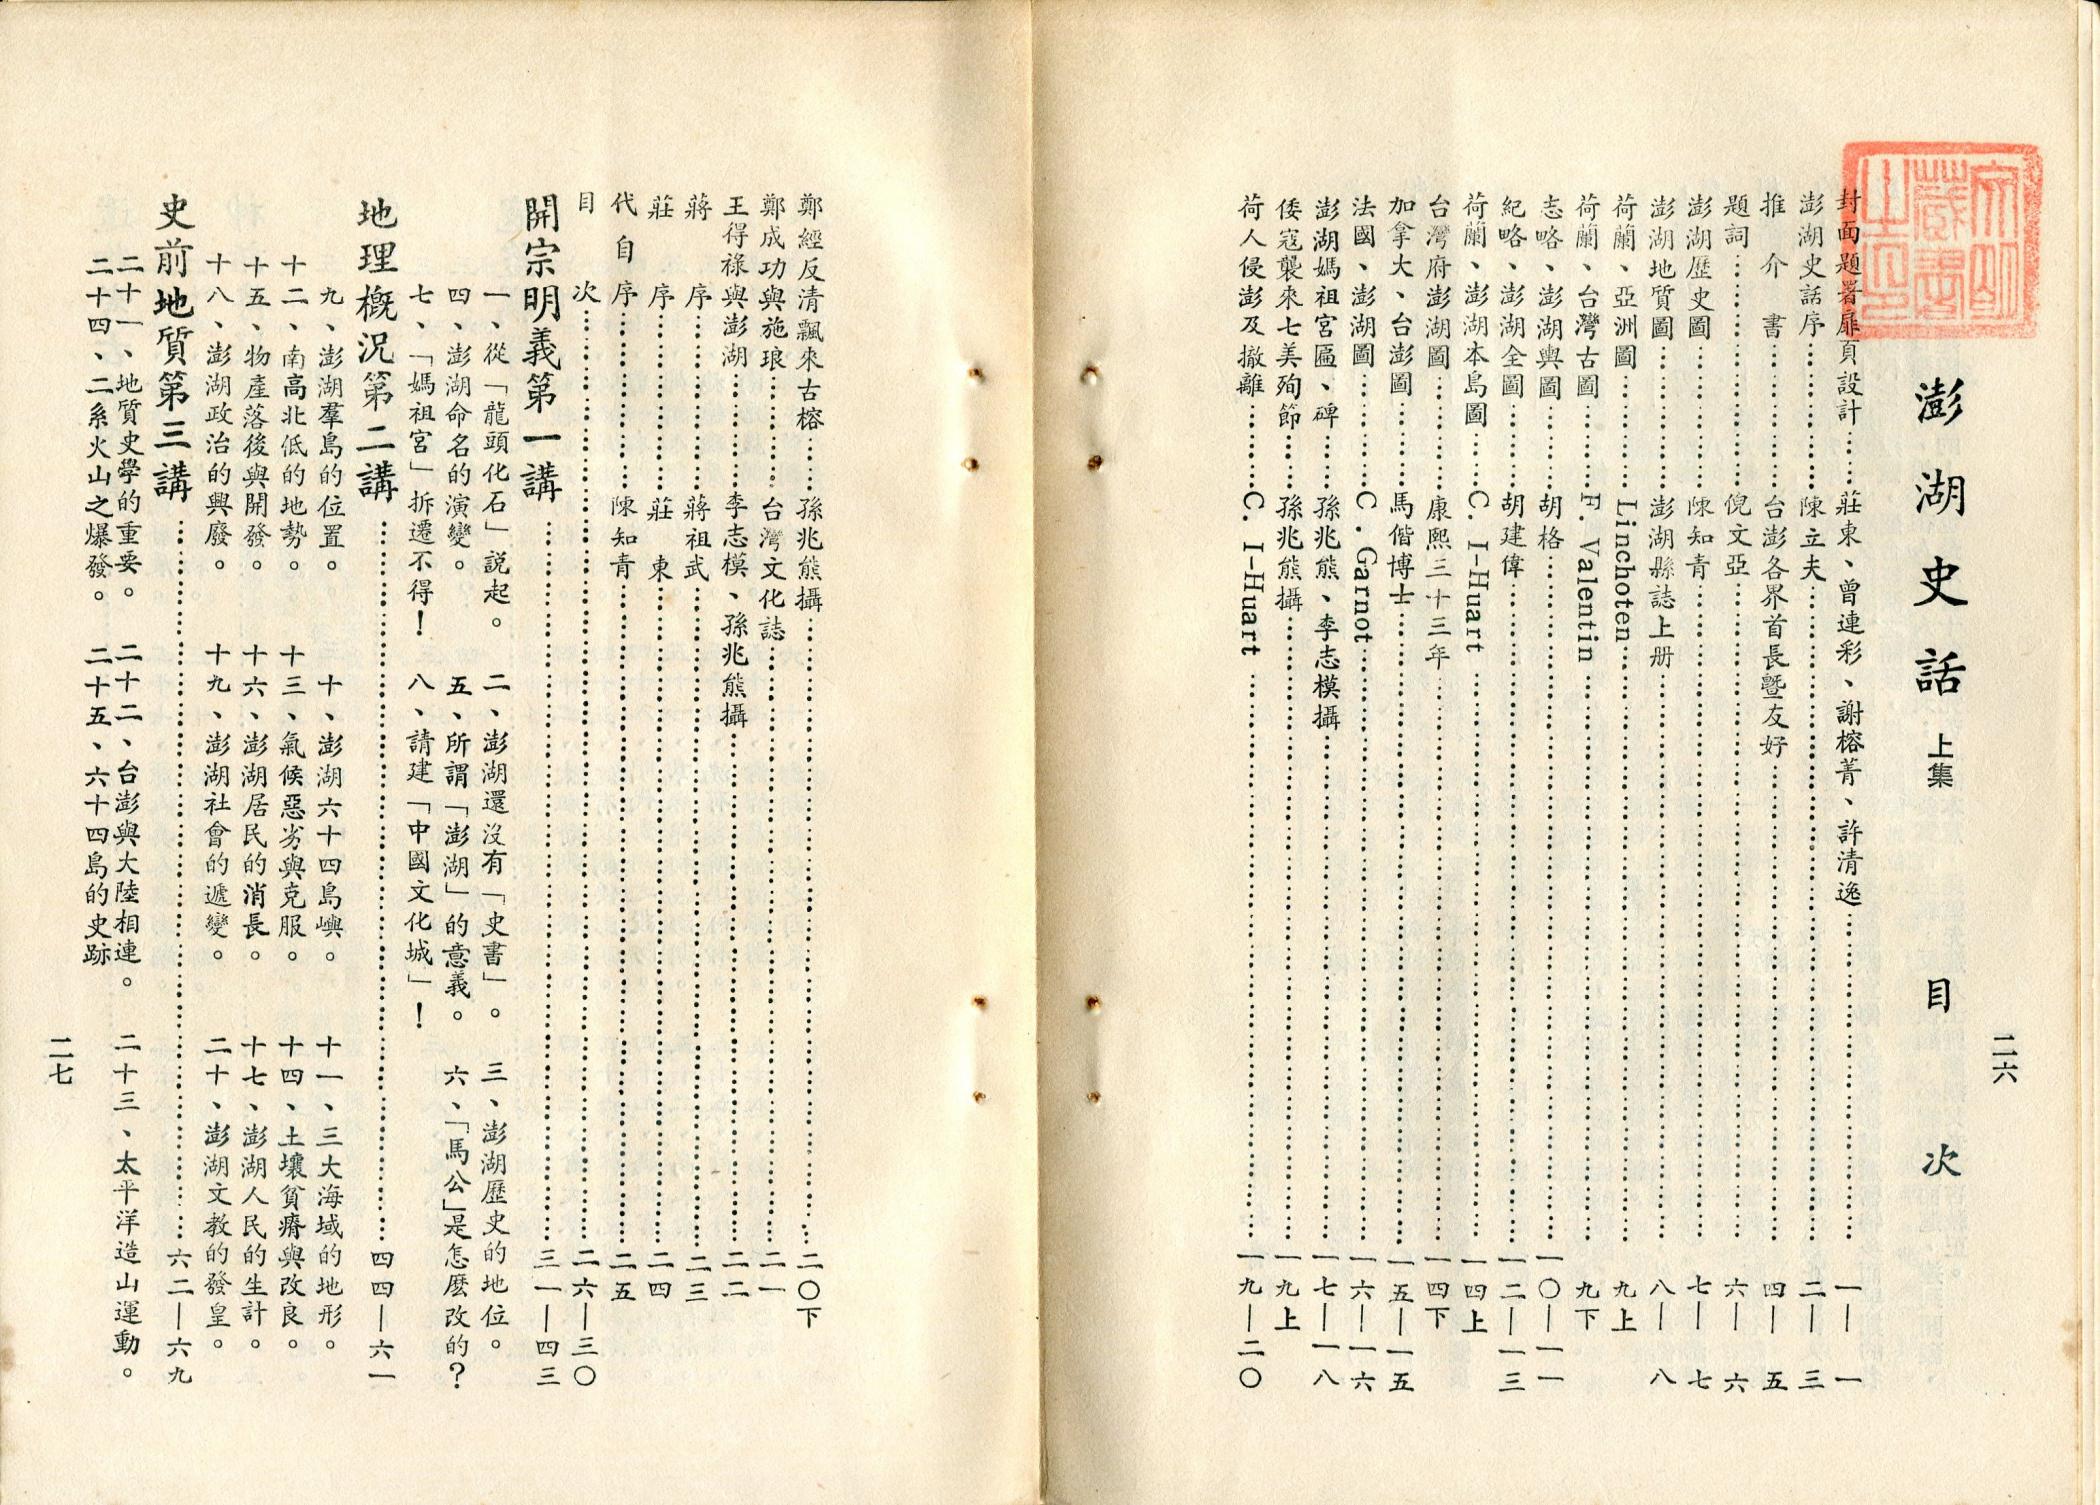 二六
澎湖史話 上集 目次
封面題署扉頁設計……莊東、曾連彩、謝榕菁、許清逸……一—一
澎湖史話序……陳立夫……二—三
推介書……台澎各界首長暨友好……四—五
題詞……倪文亞……六—六
澎湖歷史圖……陳知青……七—七
澎湖地质圖……澎湖縣誌上册……八—八
荷蘭、亞洲圖……Linchoten……九上
荷蘭、台灣古圖……F. Valentin……九下
志略、澎湖輿圖……胡格……一〇—一一
紀略、澎湖全圖……胡建偉……一二—一三
荷蘭、澎湖本島圖……C. I-Huart……一四上
台灣府澎湖圖……康熙三十三年……一四下
加拿大、台澎圖……馬偕博士……一五—一五
法國、澎湖圖……C. Garnot……一六—一六
澎湖媽祖宮匾、碑……孫兆熊、李志模攝……一七—一八
倭寇襲來七美殉節……孫兆熊攝……一九上
荷人侵澎及撤離……C. I-Huart……一九—二〇
鄭經反清飄來古榕……孫兆熊攝……二〇下
鄭成功與施琅……台灣文化誌……二一
王得祿與澎湖……李志模、孫兆熊攝……二二
蔣序……蔣祖武……二三
莊序……莊東……二四
代自序……陳知青……二五
目次……二六—三〇
開宗明義第一講……三一—四三
一、從「龍頭化石」説起。 二、澎湖還沒有「史書」。 三、澎湖歷史的地位。
四、澎湖命名的演變。 五、所謂「澎湖」的意義。 六、「馬公」是怎麼改的?
七、「媽祖宮」拆遷不得! 八、請建「中國文化城」!
地理概況第二講……四四—六一
九、澎湖羣島的位置。 十、澎湖六十四島嶼。 十一、三大海域的地形。
十二、南高北低的地勢。 十三、氣候惡劣與克服。 十四、土壤貧瘠與改良。
十五、物產落後與開發。 十六、澎湖居民的消長。 十七、澎湖人民的生計。
十八、澎湖政治的興廢。 十九、澎湖社會的遞變。 二十、澎湖文教的發皇。
史前地質第三講……六二—六九
二十一、地質史學的重要。 二十二、台澎與大陸相連。 二十三、太平洋造山運動。
二十四、二系火山之爆發。 二十五、六十四島的史跡
二七